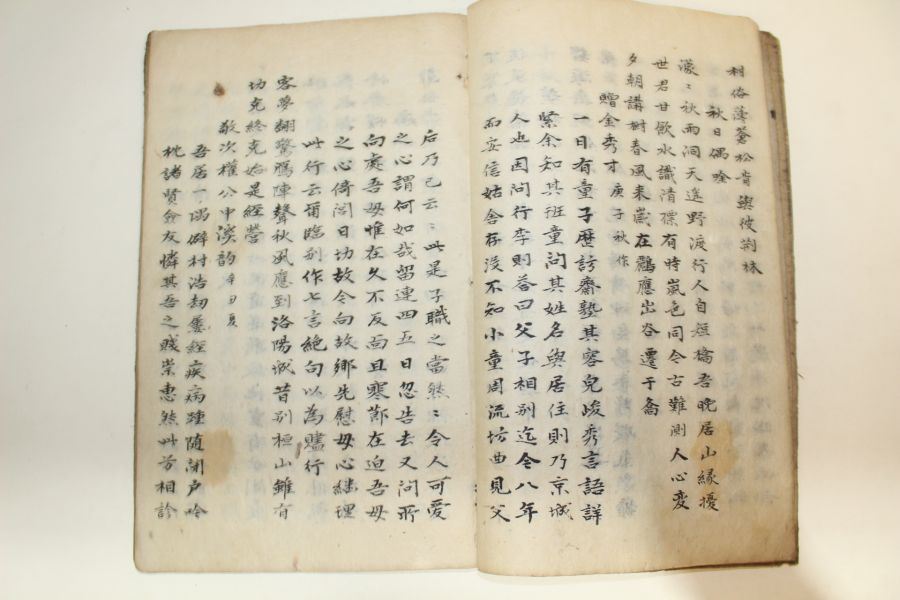 利俗薄蒼松肯與彼荊棘
秋日偶唫
濛〻秋雨洞天迷野渡行人自短橋吾晚居山緣擾
世君甘飮水識清標有時嵐色同今古難測人心變
夕朝講樹春風來歲在鸝應出谷遷于喬
贈金秀才 庚子秋作
一日有童子歷訪齋塾其容皃峻秀言語詳
緊余知其班童問其姓名與居住則乃京城
人也因問行李則答曰父子相別迄今八年
而安信姑舍存沒不知小童周流坊曲見父
后乃已云〻此是子職之當然〻令人可愛
之心謂何如哉留連四五日忽告去又問所
向處吾母惟在久不反面且寒節在迫吾母
之心倚閭日切故今向故鄉先慰母心継理
此行云爾臨別作七言絶句以為贐行
客夢翻驚鴈陣聲秋風應到洛陽城昔別桓山雖有
切克終克始是經營
敬次權公中溪韵 辛丑夏
吾居一隅僻村浩劫屢經疾病踵随閉戶呤
枕諸賢僉友憐其吾之賤崇惠然此芳相診